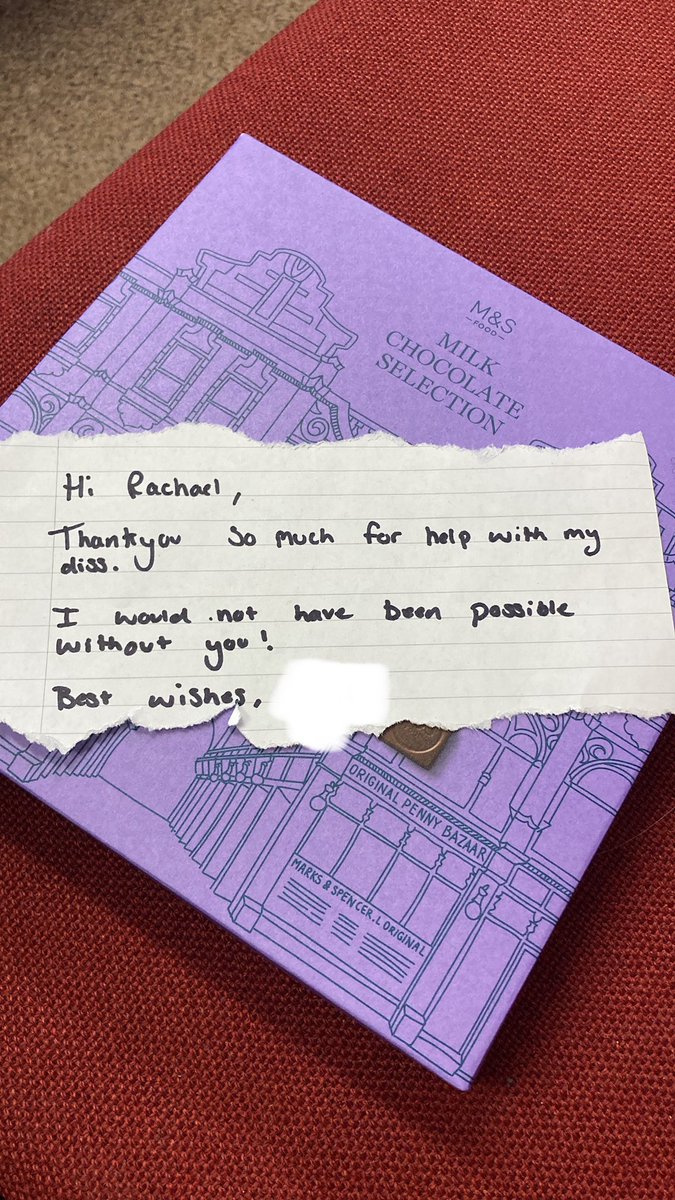 M&S
FOOD
MILK
CHOCOLATE
SELECTION
Hi Rachael,
Thankyou so much for help with my
diss.
I would not have been possible
without you!
Best wishes,
ORIGINAL PENNY BAZAAR
MARKS & SPENCER.L ORIGINAL